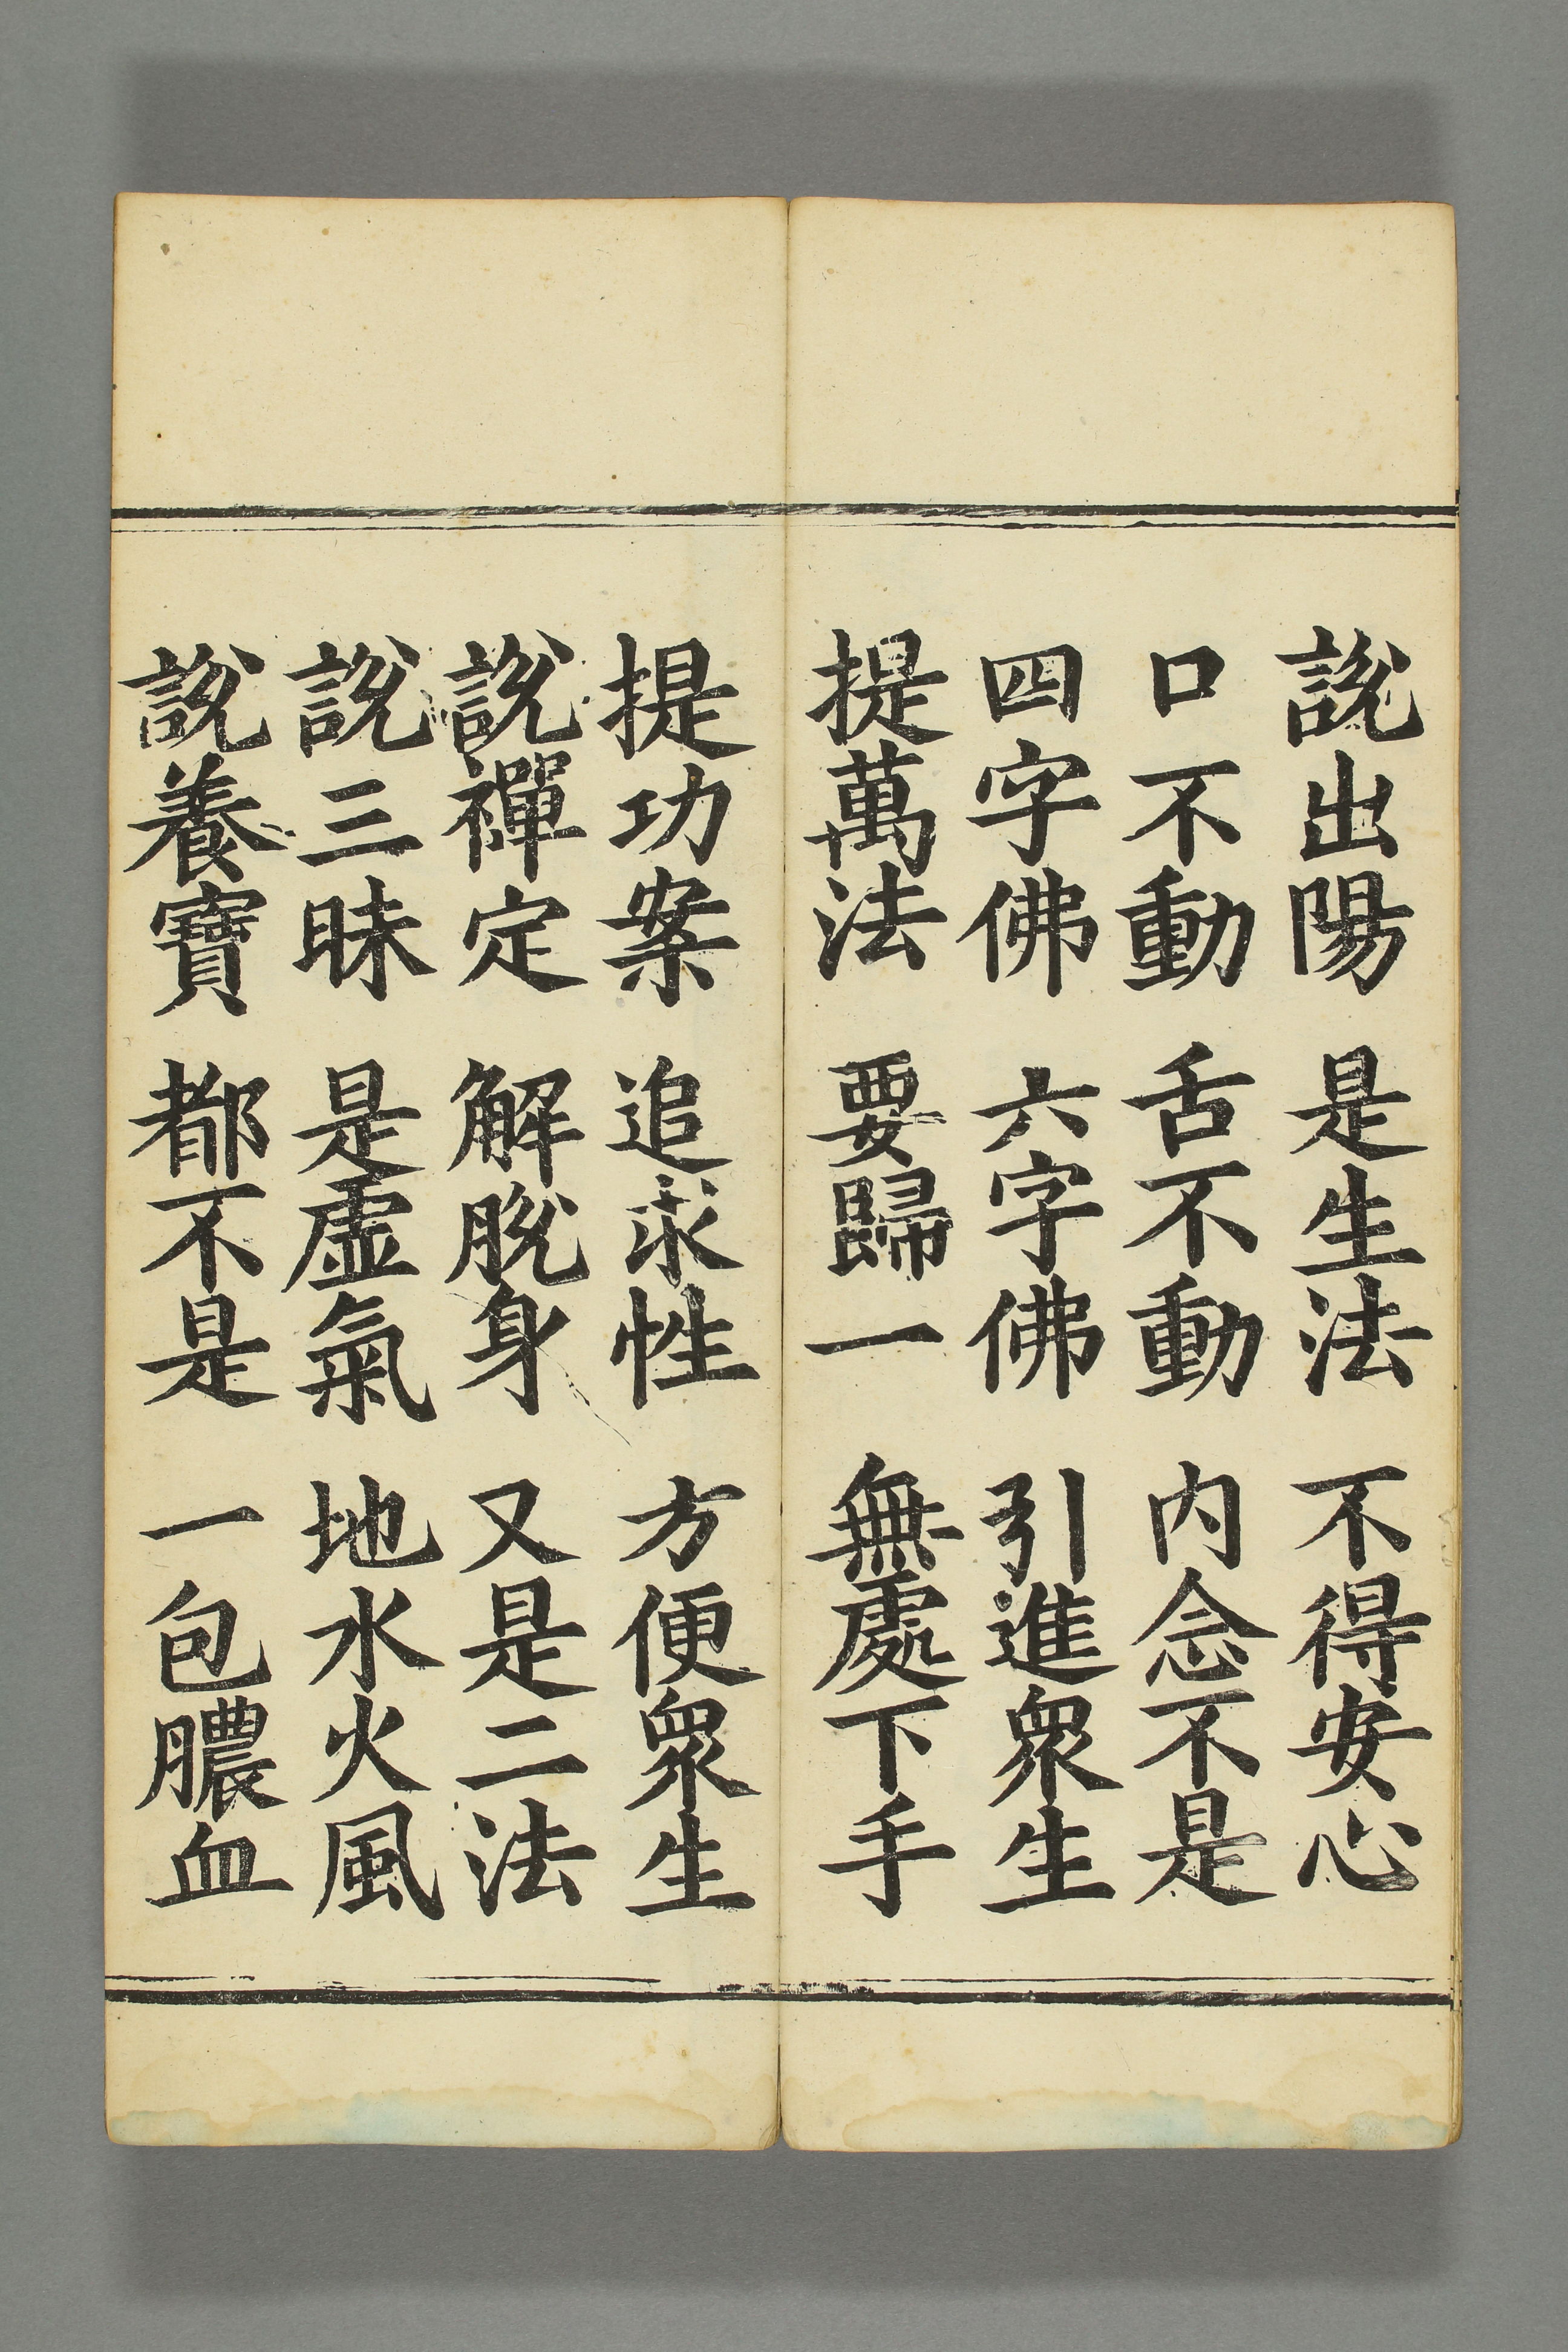 說出陽 是生法 不得安心
口不動 舌不動 内念不是
四字佛 六字佛 引進衆生
提萬法 要歸一 無處下手
提功案 追求性 方便衆生
說禪定 解脫身 又是二法
說三昧 是虛氣 地水火風
說養寶 都不是 一包膿血